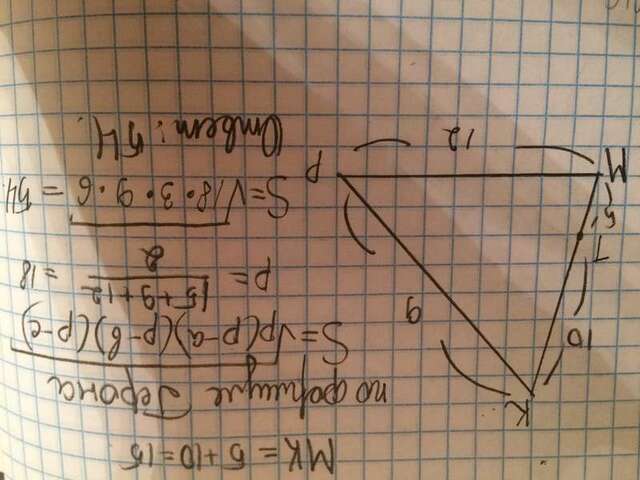 MK = 5+10=15
по формуле Герона
S=√p(p-a)(p-b)(p-c)
p= 15+9+12 / 2 =18
S=√18·3·9·6 = 54.
Ответ: 54.
K
10
9
T
5
M
12
P